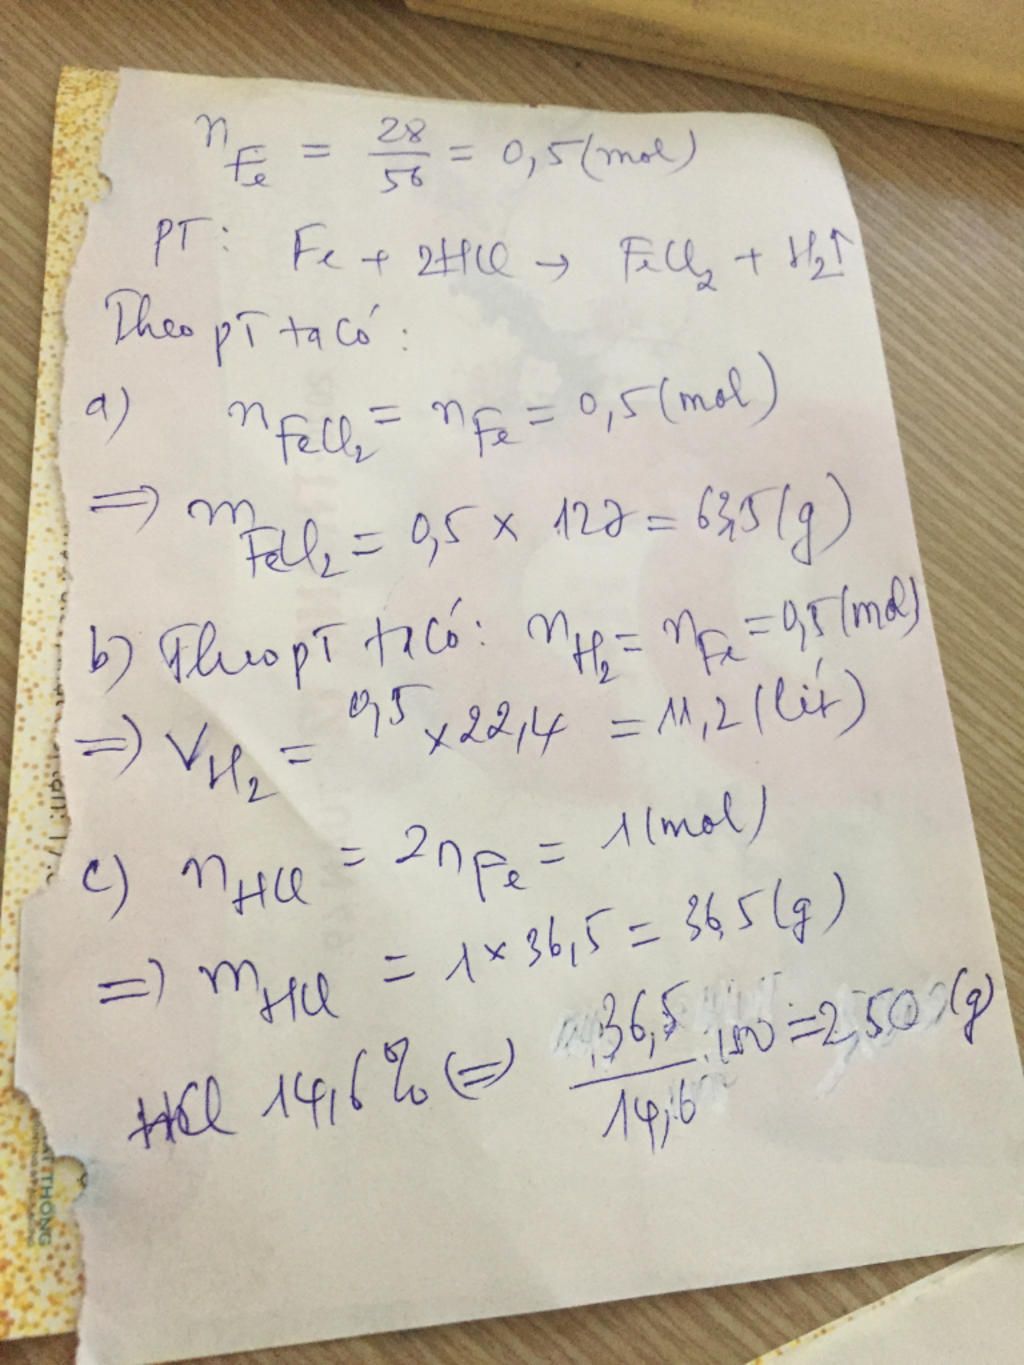 n_Fe = 28/56 = 0,5 (mol)
PT: Fe + 2HCl → FeCl₂ + H₂↑
Theo pT ta có:
a) n_FeCl₂ = n_Fe = 0,5 (mol)
=> m_FeCl₂ = 0,5 × 127 = 63,5 (g)
b) Theo pT ta có: n_H₂ = n_Fe = 0,5 (mol)
=> V_H₂ = 0,5 × 22,4 = 11,2 (lít)
c) n_HCl = 2n_Fe = 1 (mol)
=> m_HCl = 1 × 36,5 = 36,5 (g)
HCl 14,6% (=) 36,5/14,6 .100 = 2,50 (g)